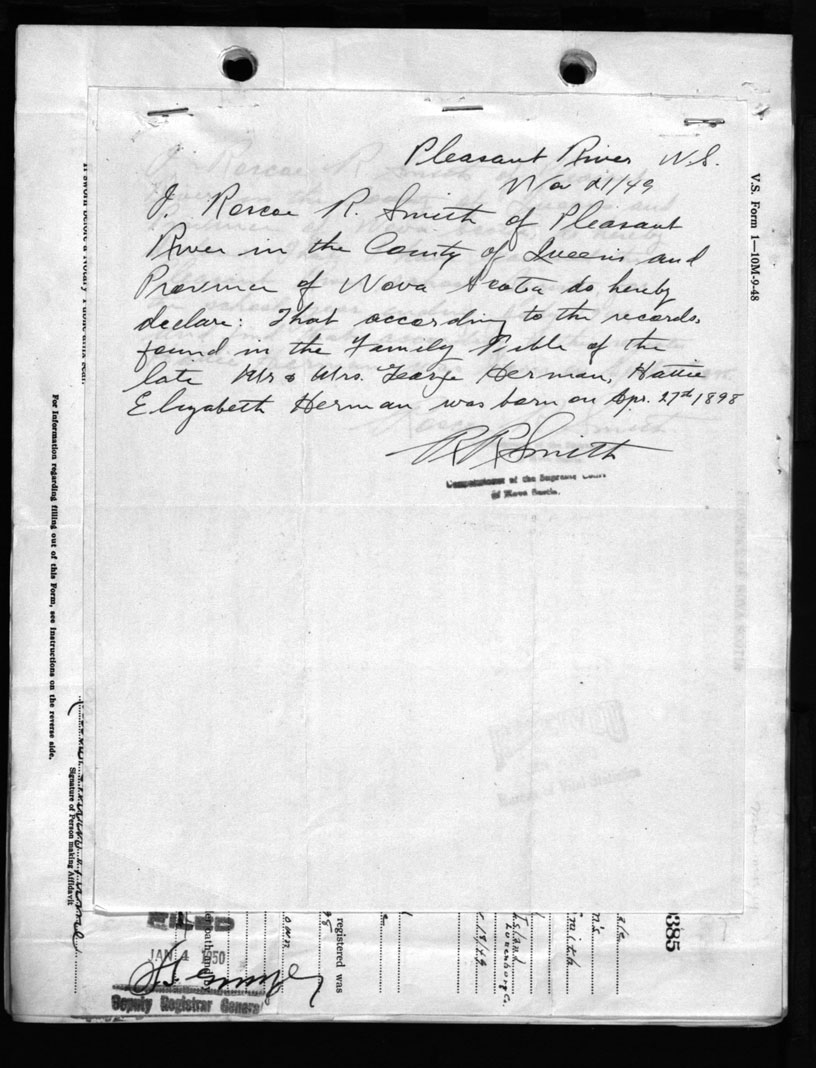 Pleasant River, N.S.
Nov 21/49
I, Roscoe R. Smith of Pleasant
River in the County of Queens and
Province of Nova Scotia do hereby
declare: That according to the records
found in the Family Bible of the
late Mr & Mrs. George Herman, Hattie
Elizabeth Herman was born on Apr. 27th 1898
R R Smith
of the Supreme Court
of Nova Scotia.
V.S. Form 1—10M-9-48
For Information regarding filling out of this Form, see Instructions on the reverse side.
Signature of Person making Affidavit
FILED
JAN 4 1950
Deputy Registrar General
registered was
Island
Lunenburg Co.
385
Bureau of Vital Statistics